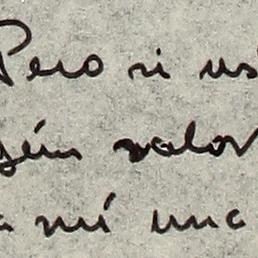 Pero si us
gún valor
a mí una